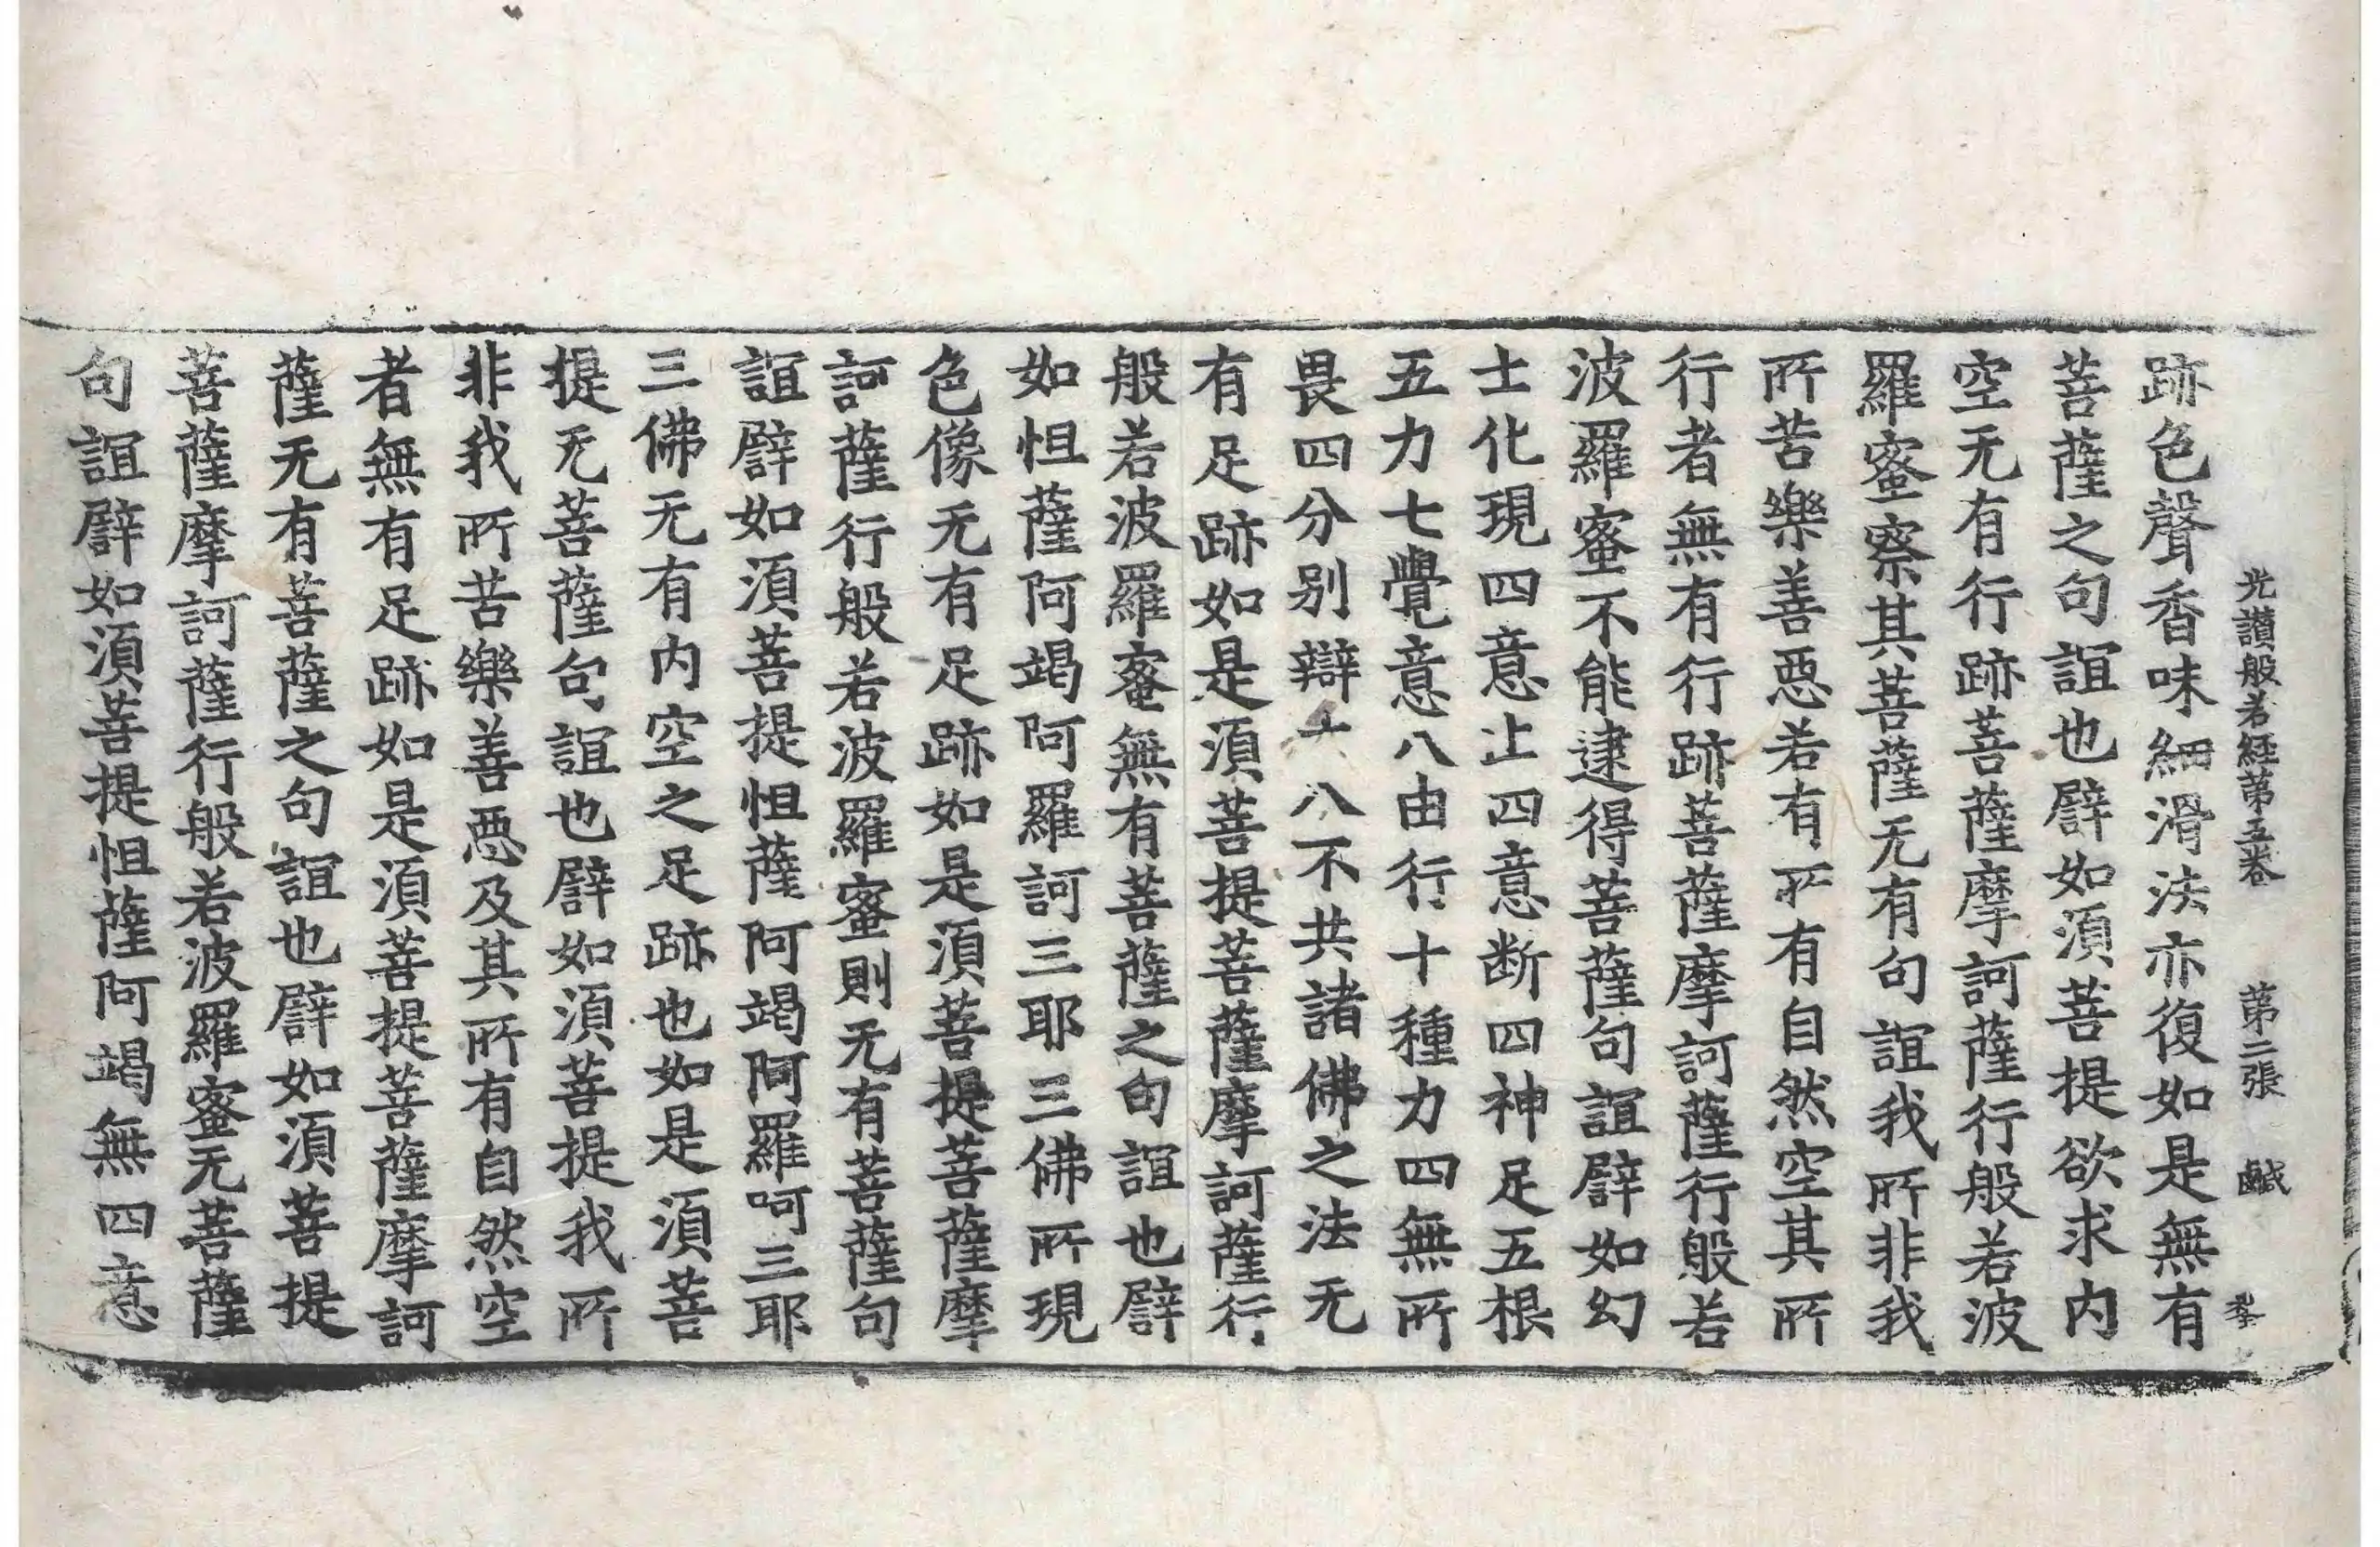 光讃般若経第五卷 第二張 鹹
跡色聲香味細滑法亦復如是無有
菩薩之句誼也譬如湏菩提欲求内
空无有行跡菩薩摩訶薩行般若波
羅蜜察其菩薩无有句誼我所非我
所苦樂善惡若有所有自然空其所
行者無有行跡菩薩摩訶薩行般若
波羅蜜不能逮得菩薩句誼譬如幻
士化現四意止四意断四神足五根
五力七覺意八由行十種力四無所
畏四分别辯十八不共諸佛之法无
有足跡如是湏菩提菩薩摩訶薩行
般若波羅蜜無有菩薩之句誼也譬
如怛薩阿竭阿羅訶三耶三佛所現
色像无有足跡如是湏菩提菩薩摩
訶薩行般若波羅蜜則无有菩薩句
誼譬如湏菩提怛薩阿竭阿羅呵三耶
三佛无有内空之足跡也如是湏菩
提无菩薩句誼也譬如湏菩提我所
非我所苦樂善惡及其所有自然空
者無有足跡如是湏菩提菩薩摩訶
薩无有菩薩之句誼也譬如湏菩提
菩薩摩訶薩行般若波羅蜜无菩薩
句誼譬如湏菩提怛薩阿竭無四意